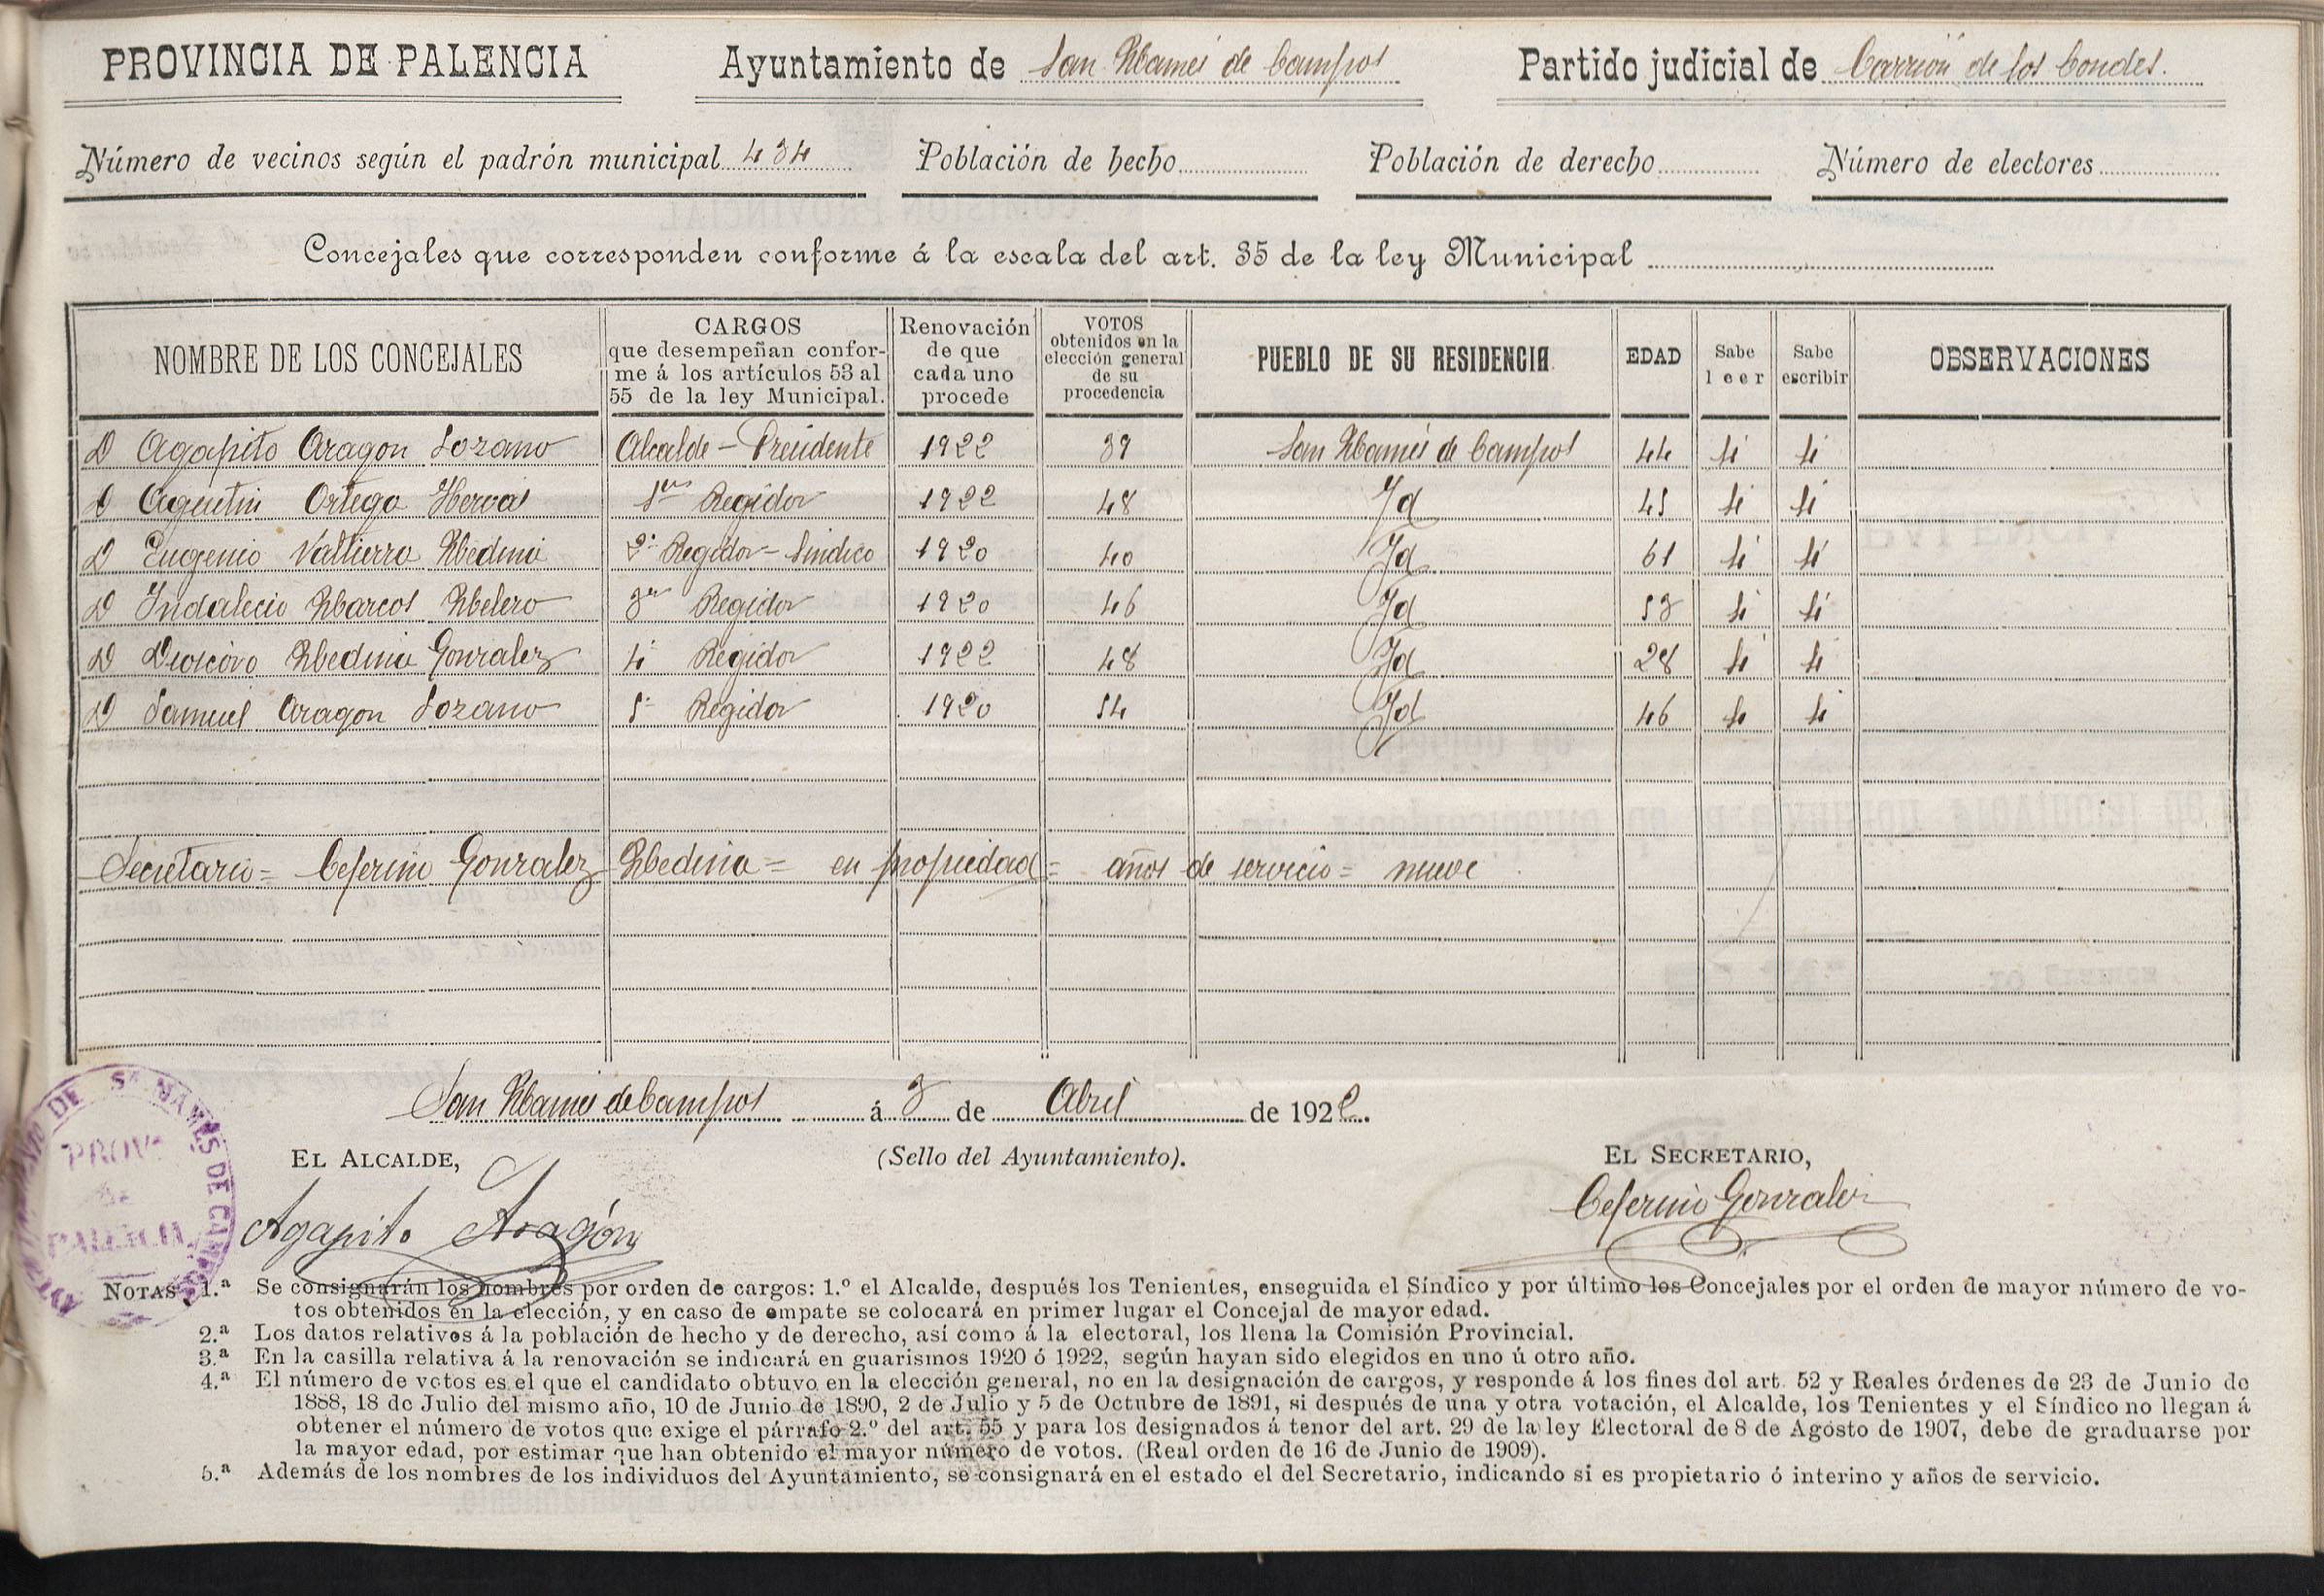 PROVINCIA DE PALENCIA Ayuntamiento de San Mamés de Campos Partido judicial de Carrión de los Condes.
Número de vecinos según el padrón municipal 434 Población de hecho Población de derecho Número de electores
Concejales que corresponden conforme á la escala del art. 35 de la ley Municipal
NOMBRE DE LOS CONCEJALES CARGOS que desempeñan confor- me á los artículos 53 al 55 de la ley Municipal. Renovación de que cada uno procede VOTOS obtenidos en la elección general de su procedencia PUEBLO DE SU RESIDENCIA EDAD Sabe leer Sabe escribir OBSERVACIONES
D Agapito Aragon Lozano Alcalde - Presidente 1922 39 San Mamés de Campos 44 si si
D Agustin Ortega Hervás 1er Regidor 1922 48 Id 45 si si
D Eugenio Valtierra Medina 2º Regidor - Sindico 1920 40 Id 61 si si
D Indalecio Marcos Melero 3er Regidor 1920 46 Id 53 si si
D Dioscoro Medina Gonzalez 4º Regidor 1922 48 Id 28 si si
D Samuel Aragon Lozano 5º Regidor 1920 54 Id 46 si si
Secretario = Ceferino Gonzalez Medina = en propiedad = años de servicio = nueve
San Mamés de Campos á 3 de Abril de 1922.
EL ALCALDE, (Sello del Ayuntamiento). EL SECRETARIO,
Agapito Aragón Ceferino Gonzalez
AYUNTAMIENTO DE SAN MAMES DE CAMPOS
PROVª
de
PALENCIA
NOTAS 1.ª Se consignarán los nombres por orden de cargos: 1.º el Alcalde, después los Tenientes, enseguida el Síndico y por último los Concejales por el orden de mayor número de vo-
tos obtenidos en la elección, y en caso de empate se colocará en primer lugar el Concejal de mayor edad.
2.ª Los datos relativos á la población de hecho y de derecho, así como á la electoral, los llena la Comisión Provincial.
3.ª En la casilla relativa á la renovación se indicará en guarismos 1920 ó 1922, según hayan sido elegidos en uno ú otro año.
4.ª El número de votos es el que el candidato obtuvo en la elección general, no en la designación de cargos, y responde á los fines del art. 52 y Reales órdenes de 23 de Junio de
1888, 18 de Julio del mismo año, 10 de Junio de 1890, 2 de Julio y 5 de Octubre de 1891, si después de una y otra votación, el Alcalde, los Tenientes y el Síndico no llegan á
obtener el número de votos que exige el párrafo 2.º del art. 55 y para los designados á tenor del art. 29 de la ley Electoral de 8 de Agosto de 1907, debe de graduarse por
la mayor edad, por estimar que han obtenido el mayor número de votos. (Real orden de 16 de Junio de 1909).
5.ª Además de los nombres de los individuos del Ayuntamiento, se consignará en el estado el del Secretario, indicando si es propietario ó interino y años de servicio.